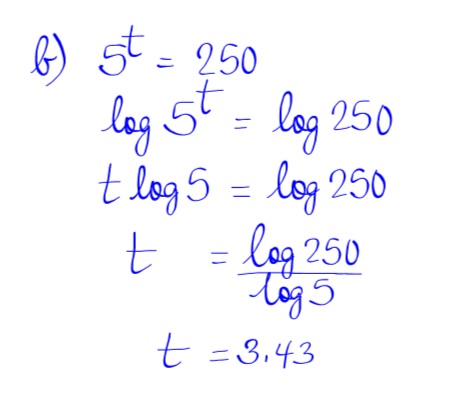 b) 5^t = 250
log 5^t = log 250
t log 5 = log 250
t = log 250 / log 5
t = 3.43